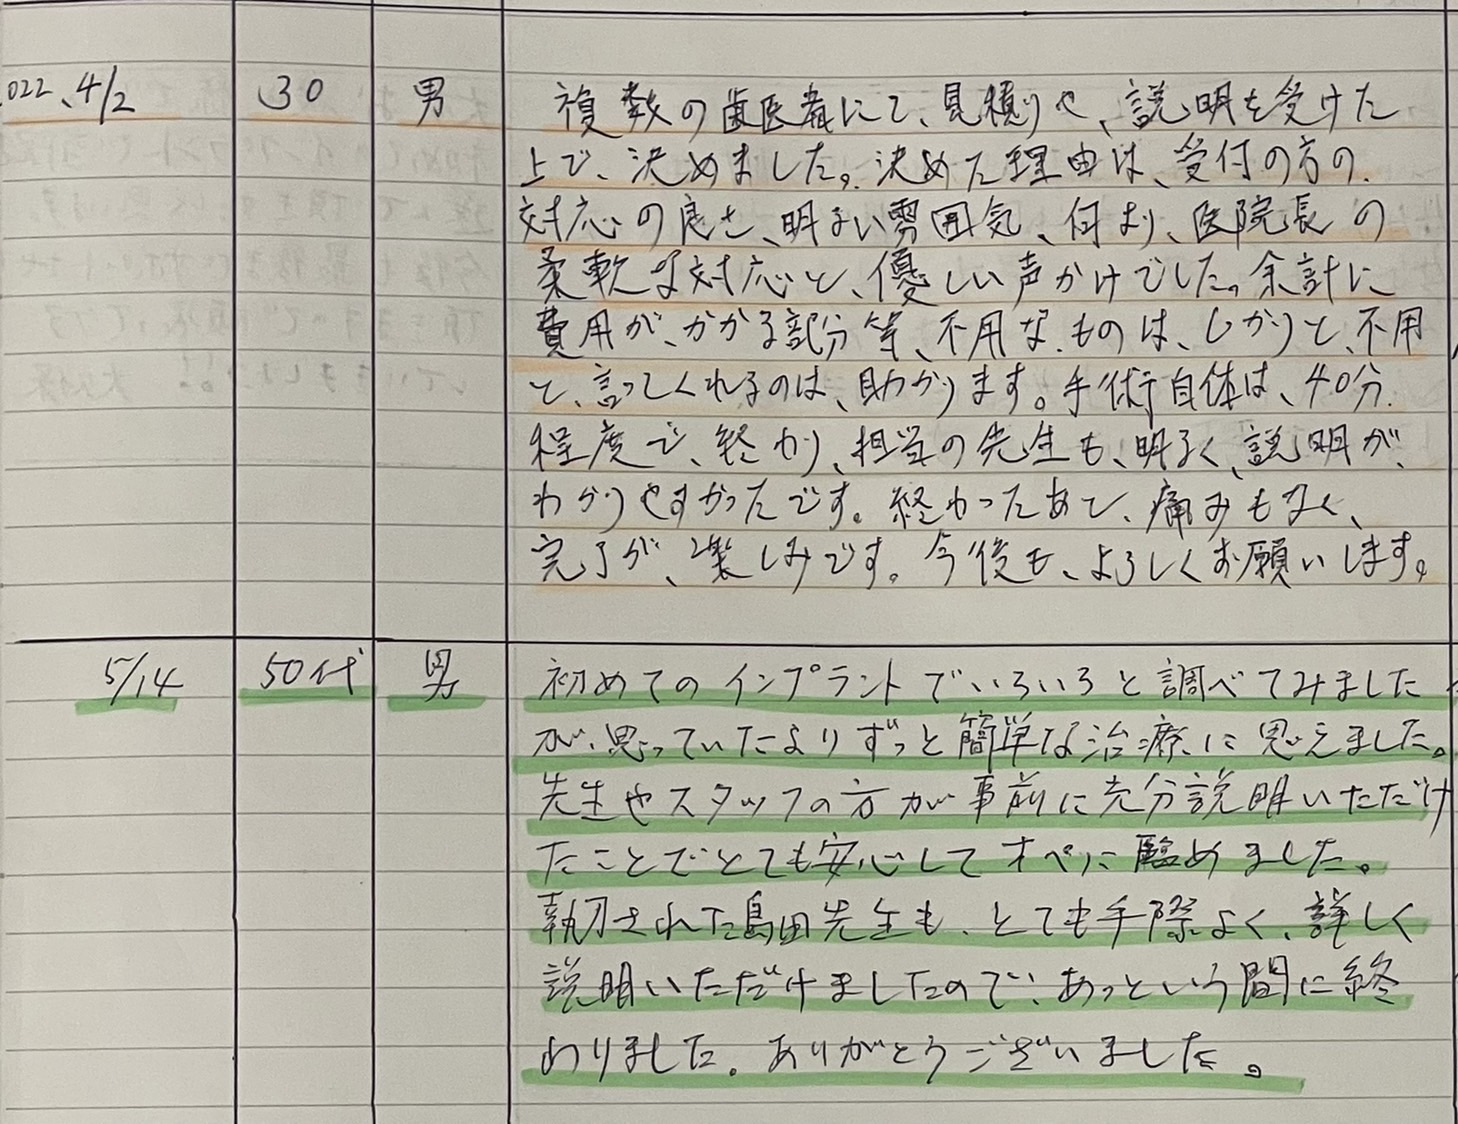 022、4/2 30 男 複数の歯医者にて、見積りや、説明を受けた
上で、決めました。決めた理由は、受付の方の
対応の良さ、明るい雰囲気、何より、医院長の
柔軟な対応と、優しい声かけでした。余計に
費用が、かかる部分等、不用なものは、しかりと、不用
と、言ってくれるのは、助かります。手術自体は、40分
程度で、終わり、担当の先生も、明るく、説明が、
わかりやすかったです。終わったあと、痛みもなく、
完了が、楽しみです。今後も、よろしくお願いします。
5/14 50代 男 初めてのインプラントでいろいろと調べてみました
が、思っていたよりずっと簡単な治療に思えました。
先生やスタッフの方が事前に充分説明いただけ
たことでとても安心してオペに臨めました。
執刀された島田先生も、とても手際よく、詳しく
説明いただけましたので、あっという間に終
わりました。ありがとうございました。